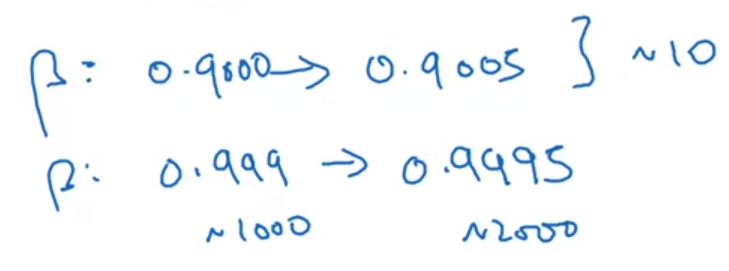 β: 0.9000 → 0.9005 } ~10
β: 0.999 → 0.9995
~1000 ~2000